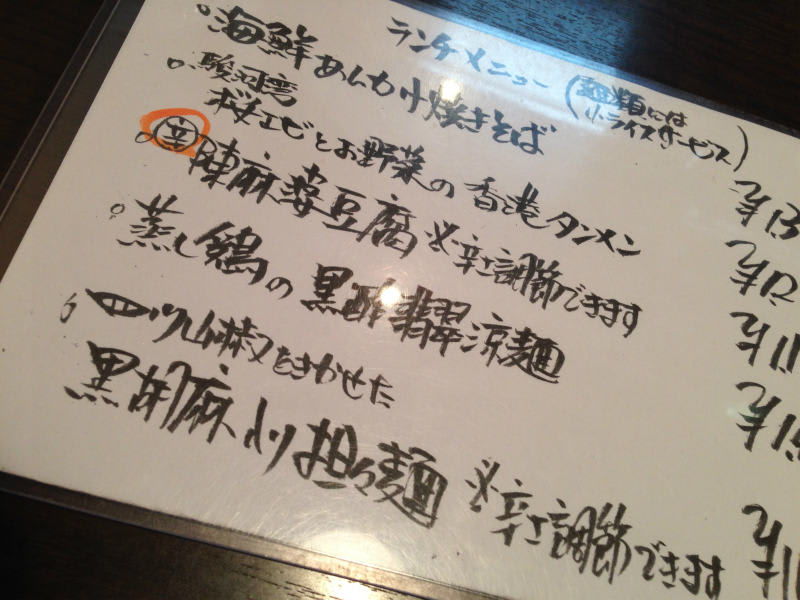 ランチメニュー (麺類には
小ライスサービス)
。海鮮あんかけ焼きそば
。駿河湾
桜エビとお野菜の香港タンメン
。辛 陳麻婆豆腐 ※辛さ調節できます
。蒸し鶏の黒酢翡翠涼麺
。四川山椒をきかせた
黒胡麻汁担々麺 ※辛さ調節できます